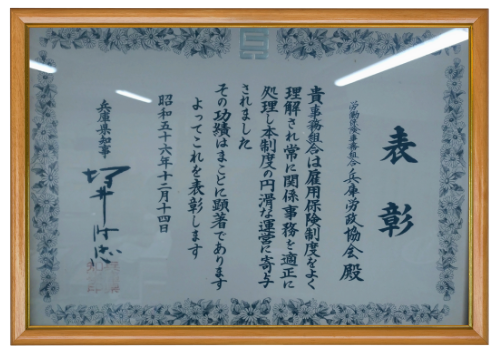 表彰
労働保険事務組合兵庫労政協会殿
貴事務組合は雇用保険制度をよく
理解され常に関係事務を適正に
処理し本制度の円滑な運営に寄与
されました
その功績はまことに顕著であります
よってこれを表彰します
昭和五十六年十二月十四日
兵庫県知事
坂井時忠